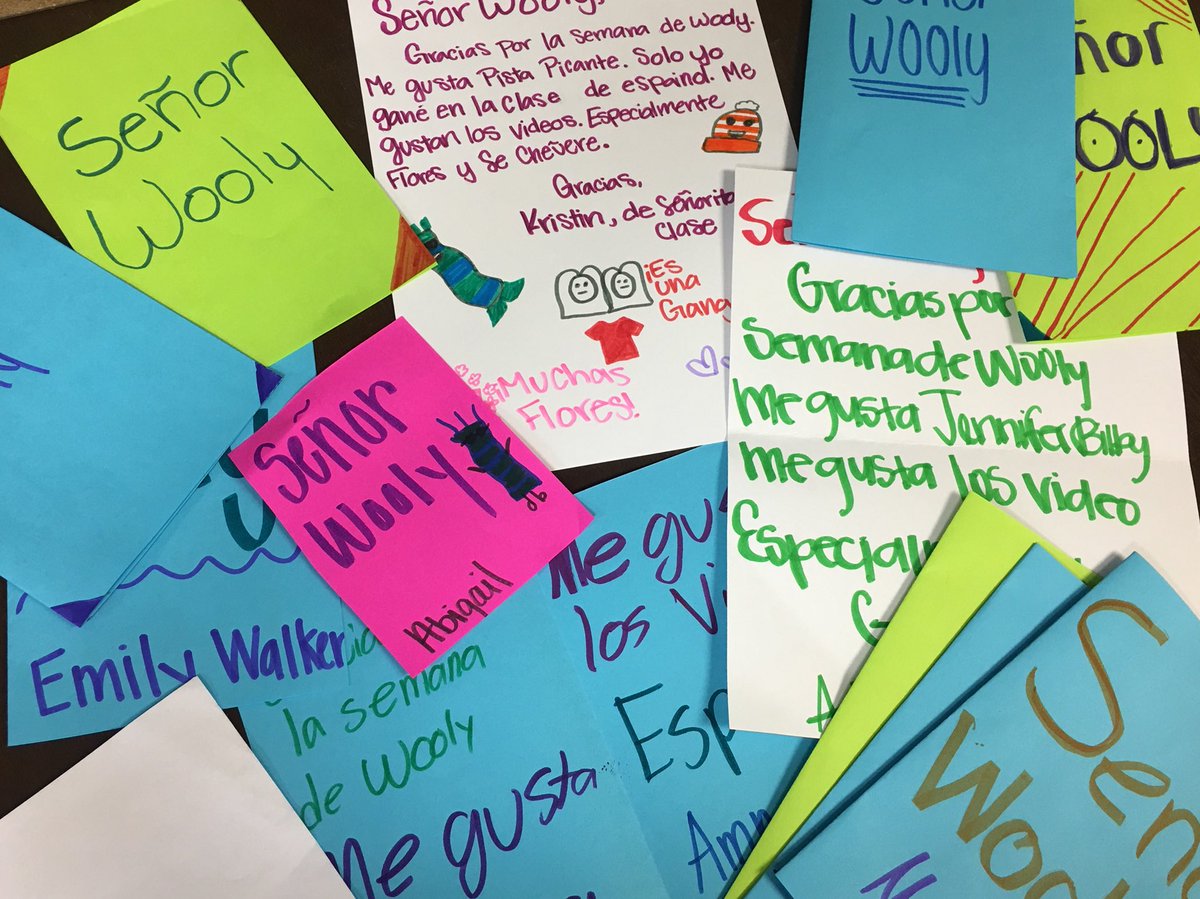 Señor
Wooly
Señor Wooly,
Gracias por la semana de Wooly.
Me gusta Pista Picante. Solo yo
gané en la clase de espainol. Me
gustan los videos. Especialmente
Flores y Se Chevere.
Gracias,
Kristin, de Señorita
clase
¡Es
una
Gang
¡Muchas
Flores!
Señor
WOOLY
ñor
OOLY
Gracias por
Semana de Wooly
Me gusta Jennifer Billy
Me gusta los video
Señor
Wooly
Abigail
Emily Walker
la semana
de Wooly
Me gusta
Me gus
los Vi
Esp
Señ
Woo